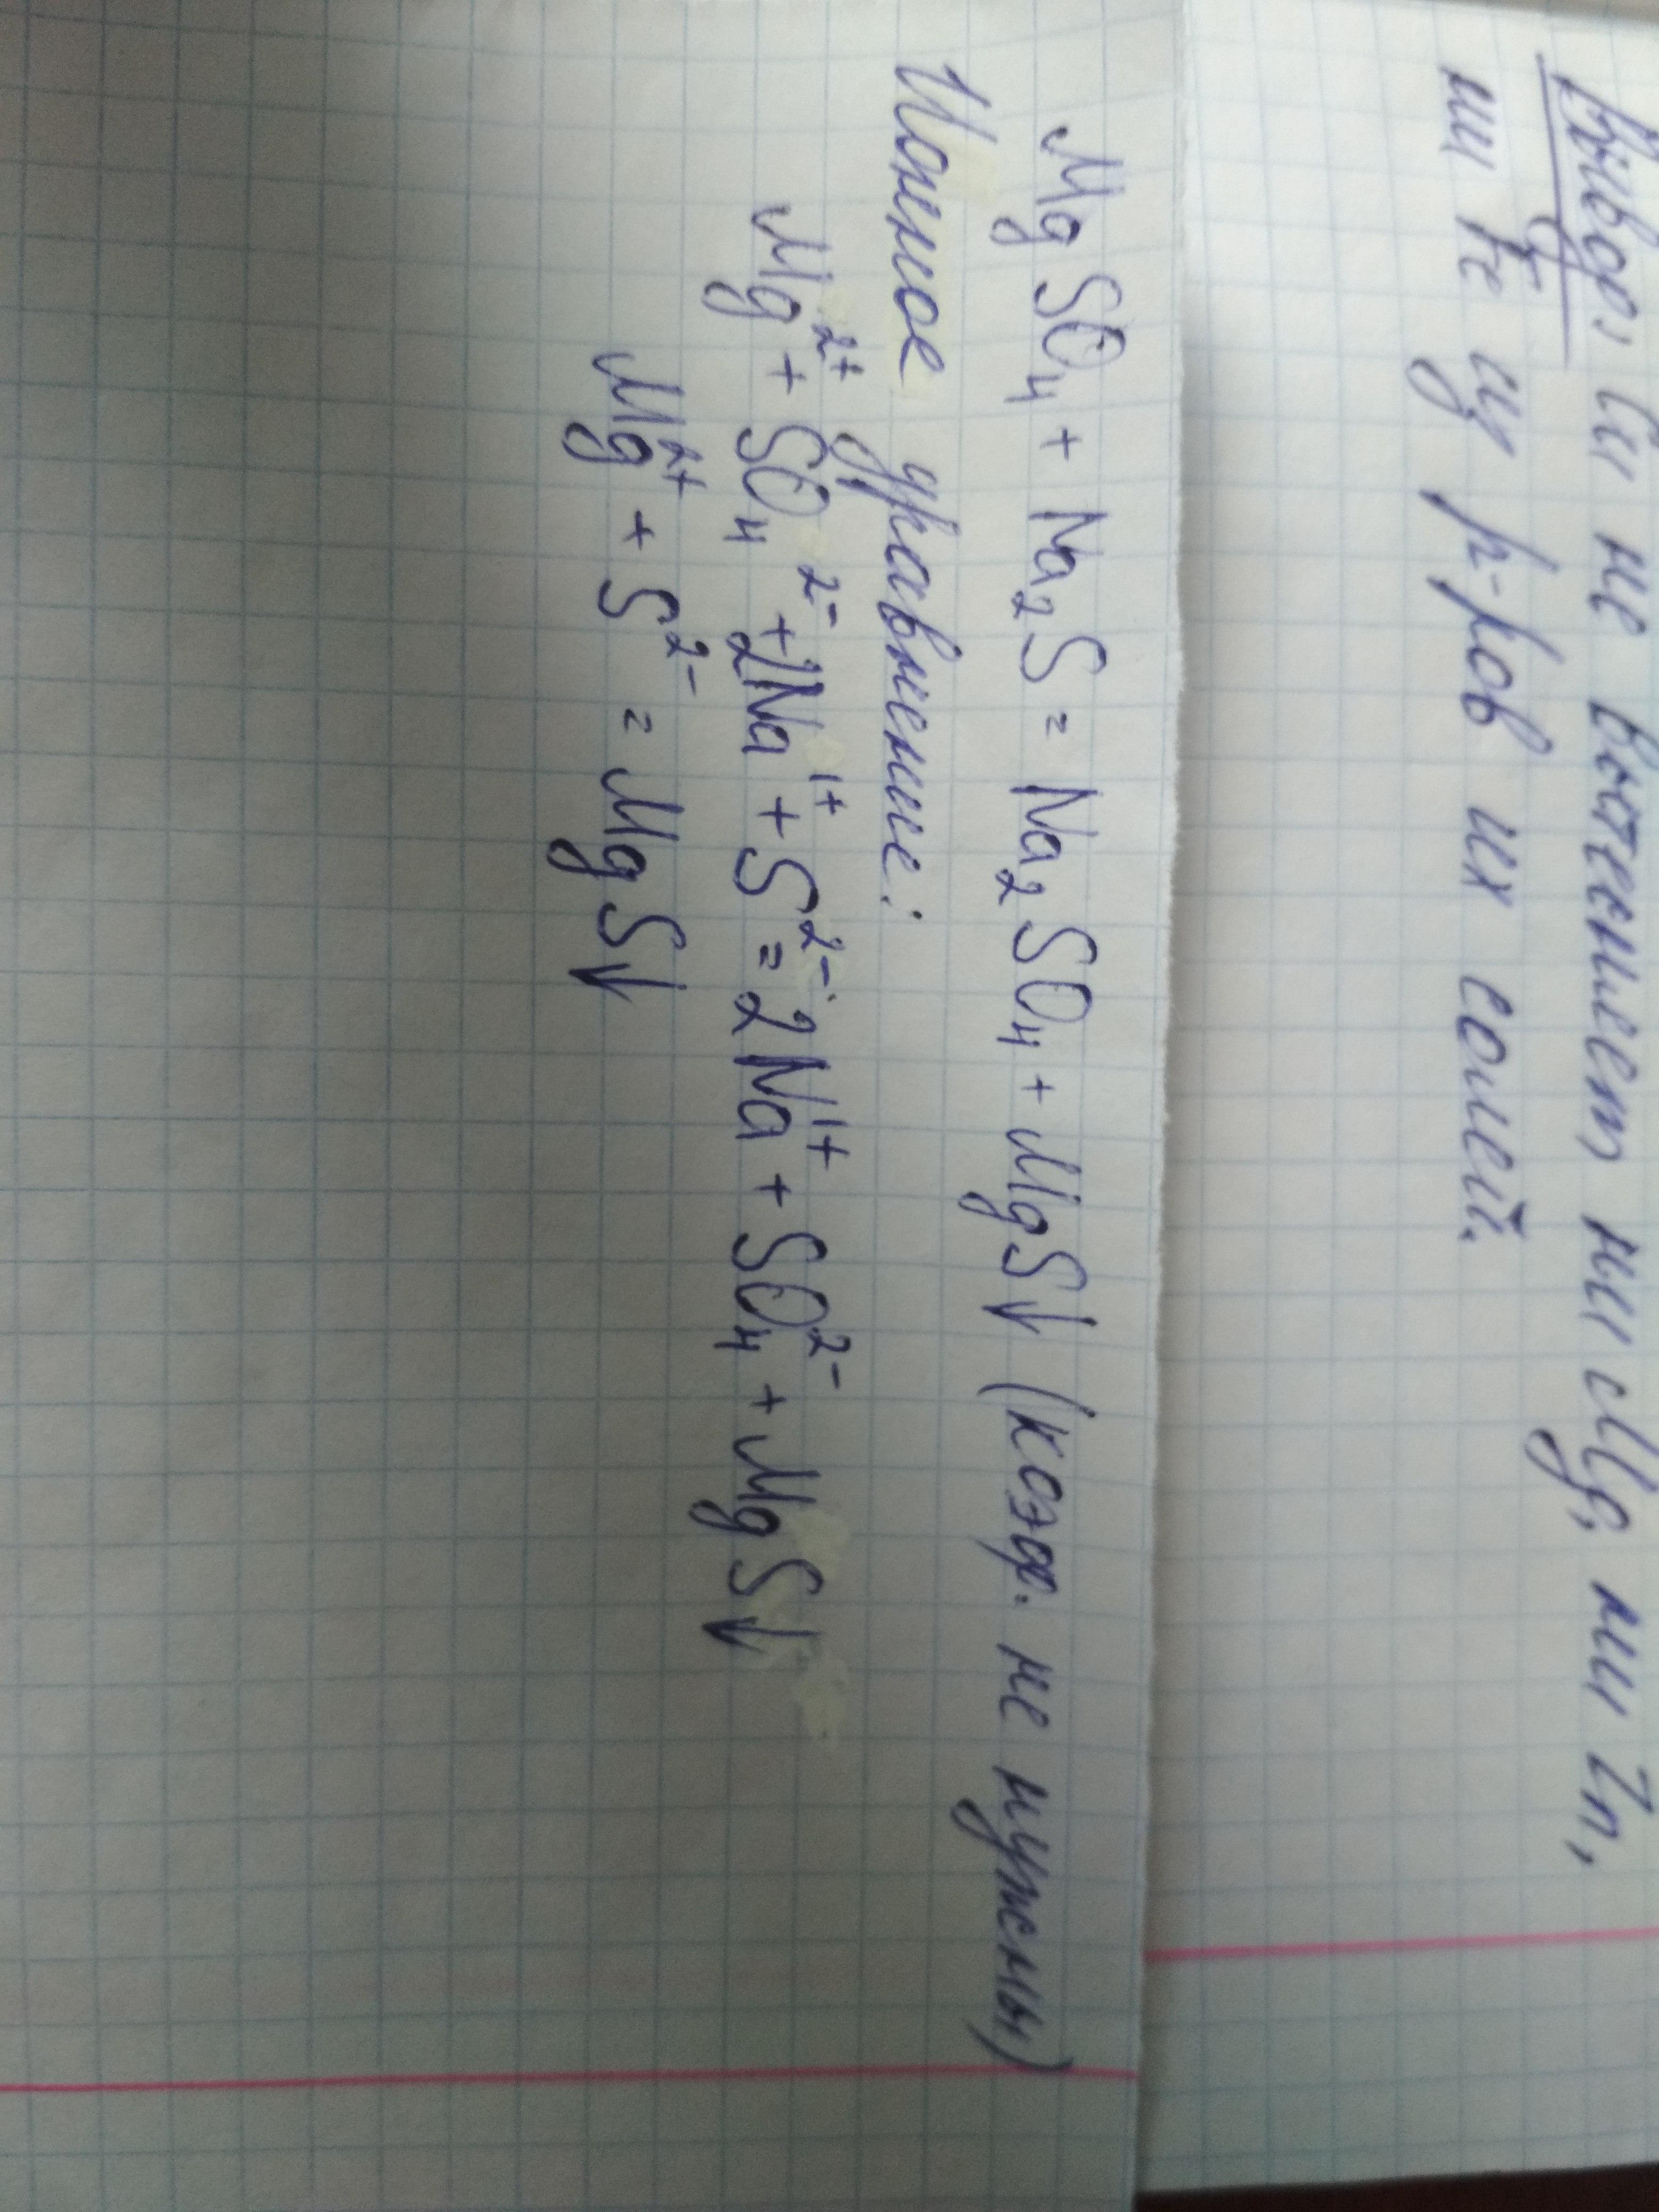 Вывод: Cu не вытесняет ни Mg, ни Zn,
ни Fe из р-ров их солей.
MgSO₄ + Na₂S = Na₂SO₄ + MgS↓ (коэф. не нужны)
Ионное уравнение:
Mg²⁺ + SO₄²⁻ + 2Na¹⁺ + S²⁻ = 2Na¹⁺ + SO₄²⁻ + MgS↓
Mg²⁺ + S²⁻ = MgS↓